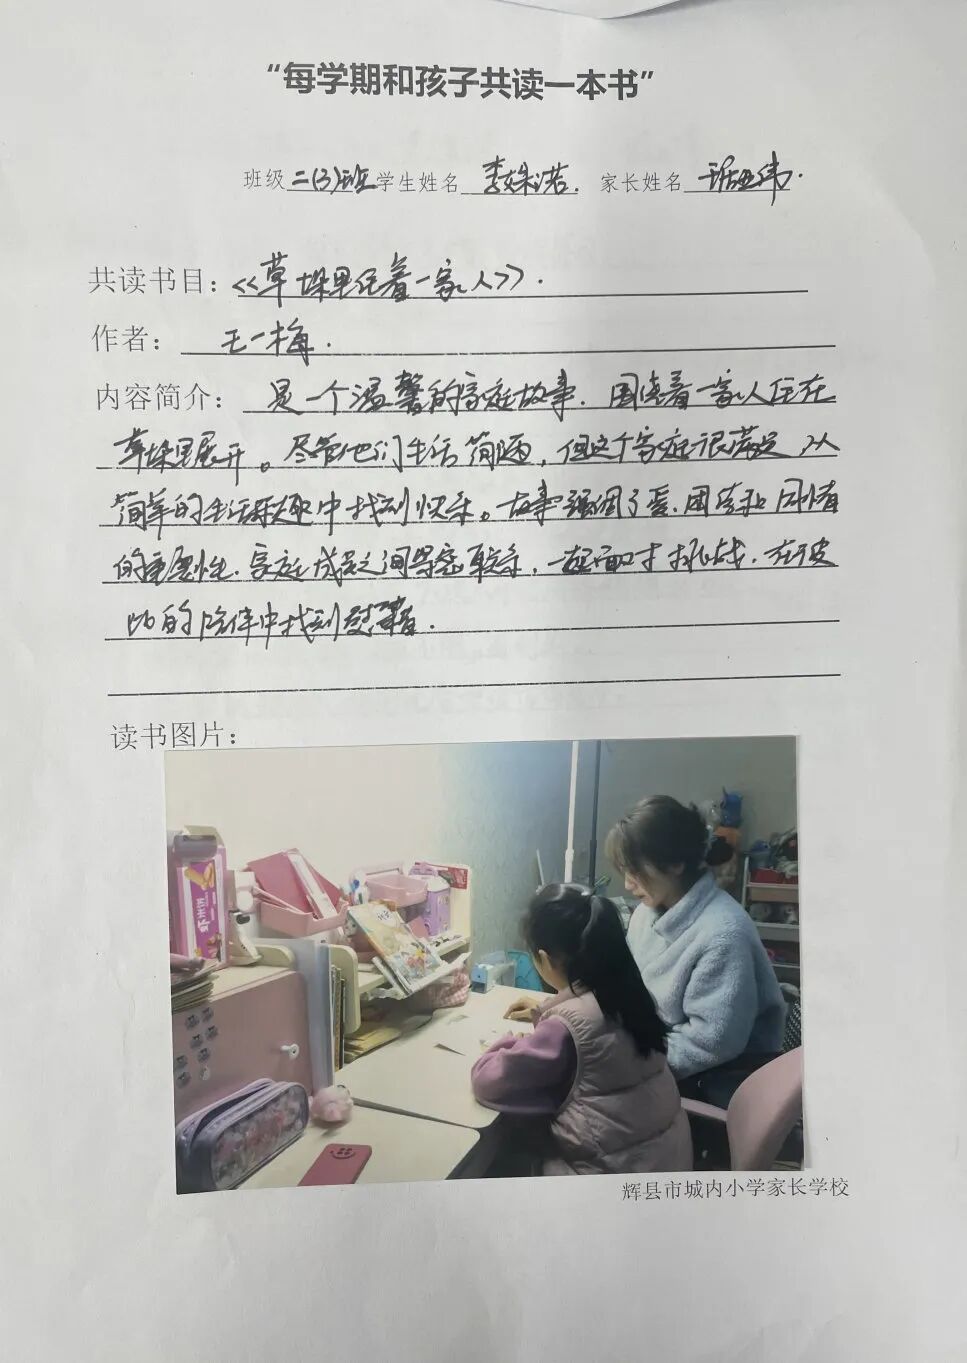 “每学期和孩子共读一本书”
班级 二(3)班 学生姓名 李姝诺. 家长姓名 伟.
共读书目：《草垛里住着一家人》.
作者： 王一梅.
内容简介： 是一个温馨的家庭故事. 围绕着一家人住在
草垛里展开。尽管他们生活简陋，但这个家庭很满足，从
简单的生活乐趣中找到快乐。故事强调了爱.团结和同情
的重要性.家庭成员之间紧密联系，一起面对挑战.在彼
此的陪伴中找到慰藉.
读书图片：
辉县市城内小学家长学校